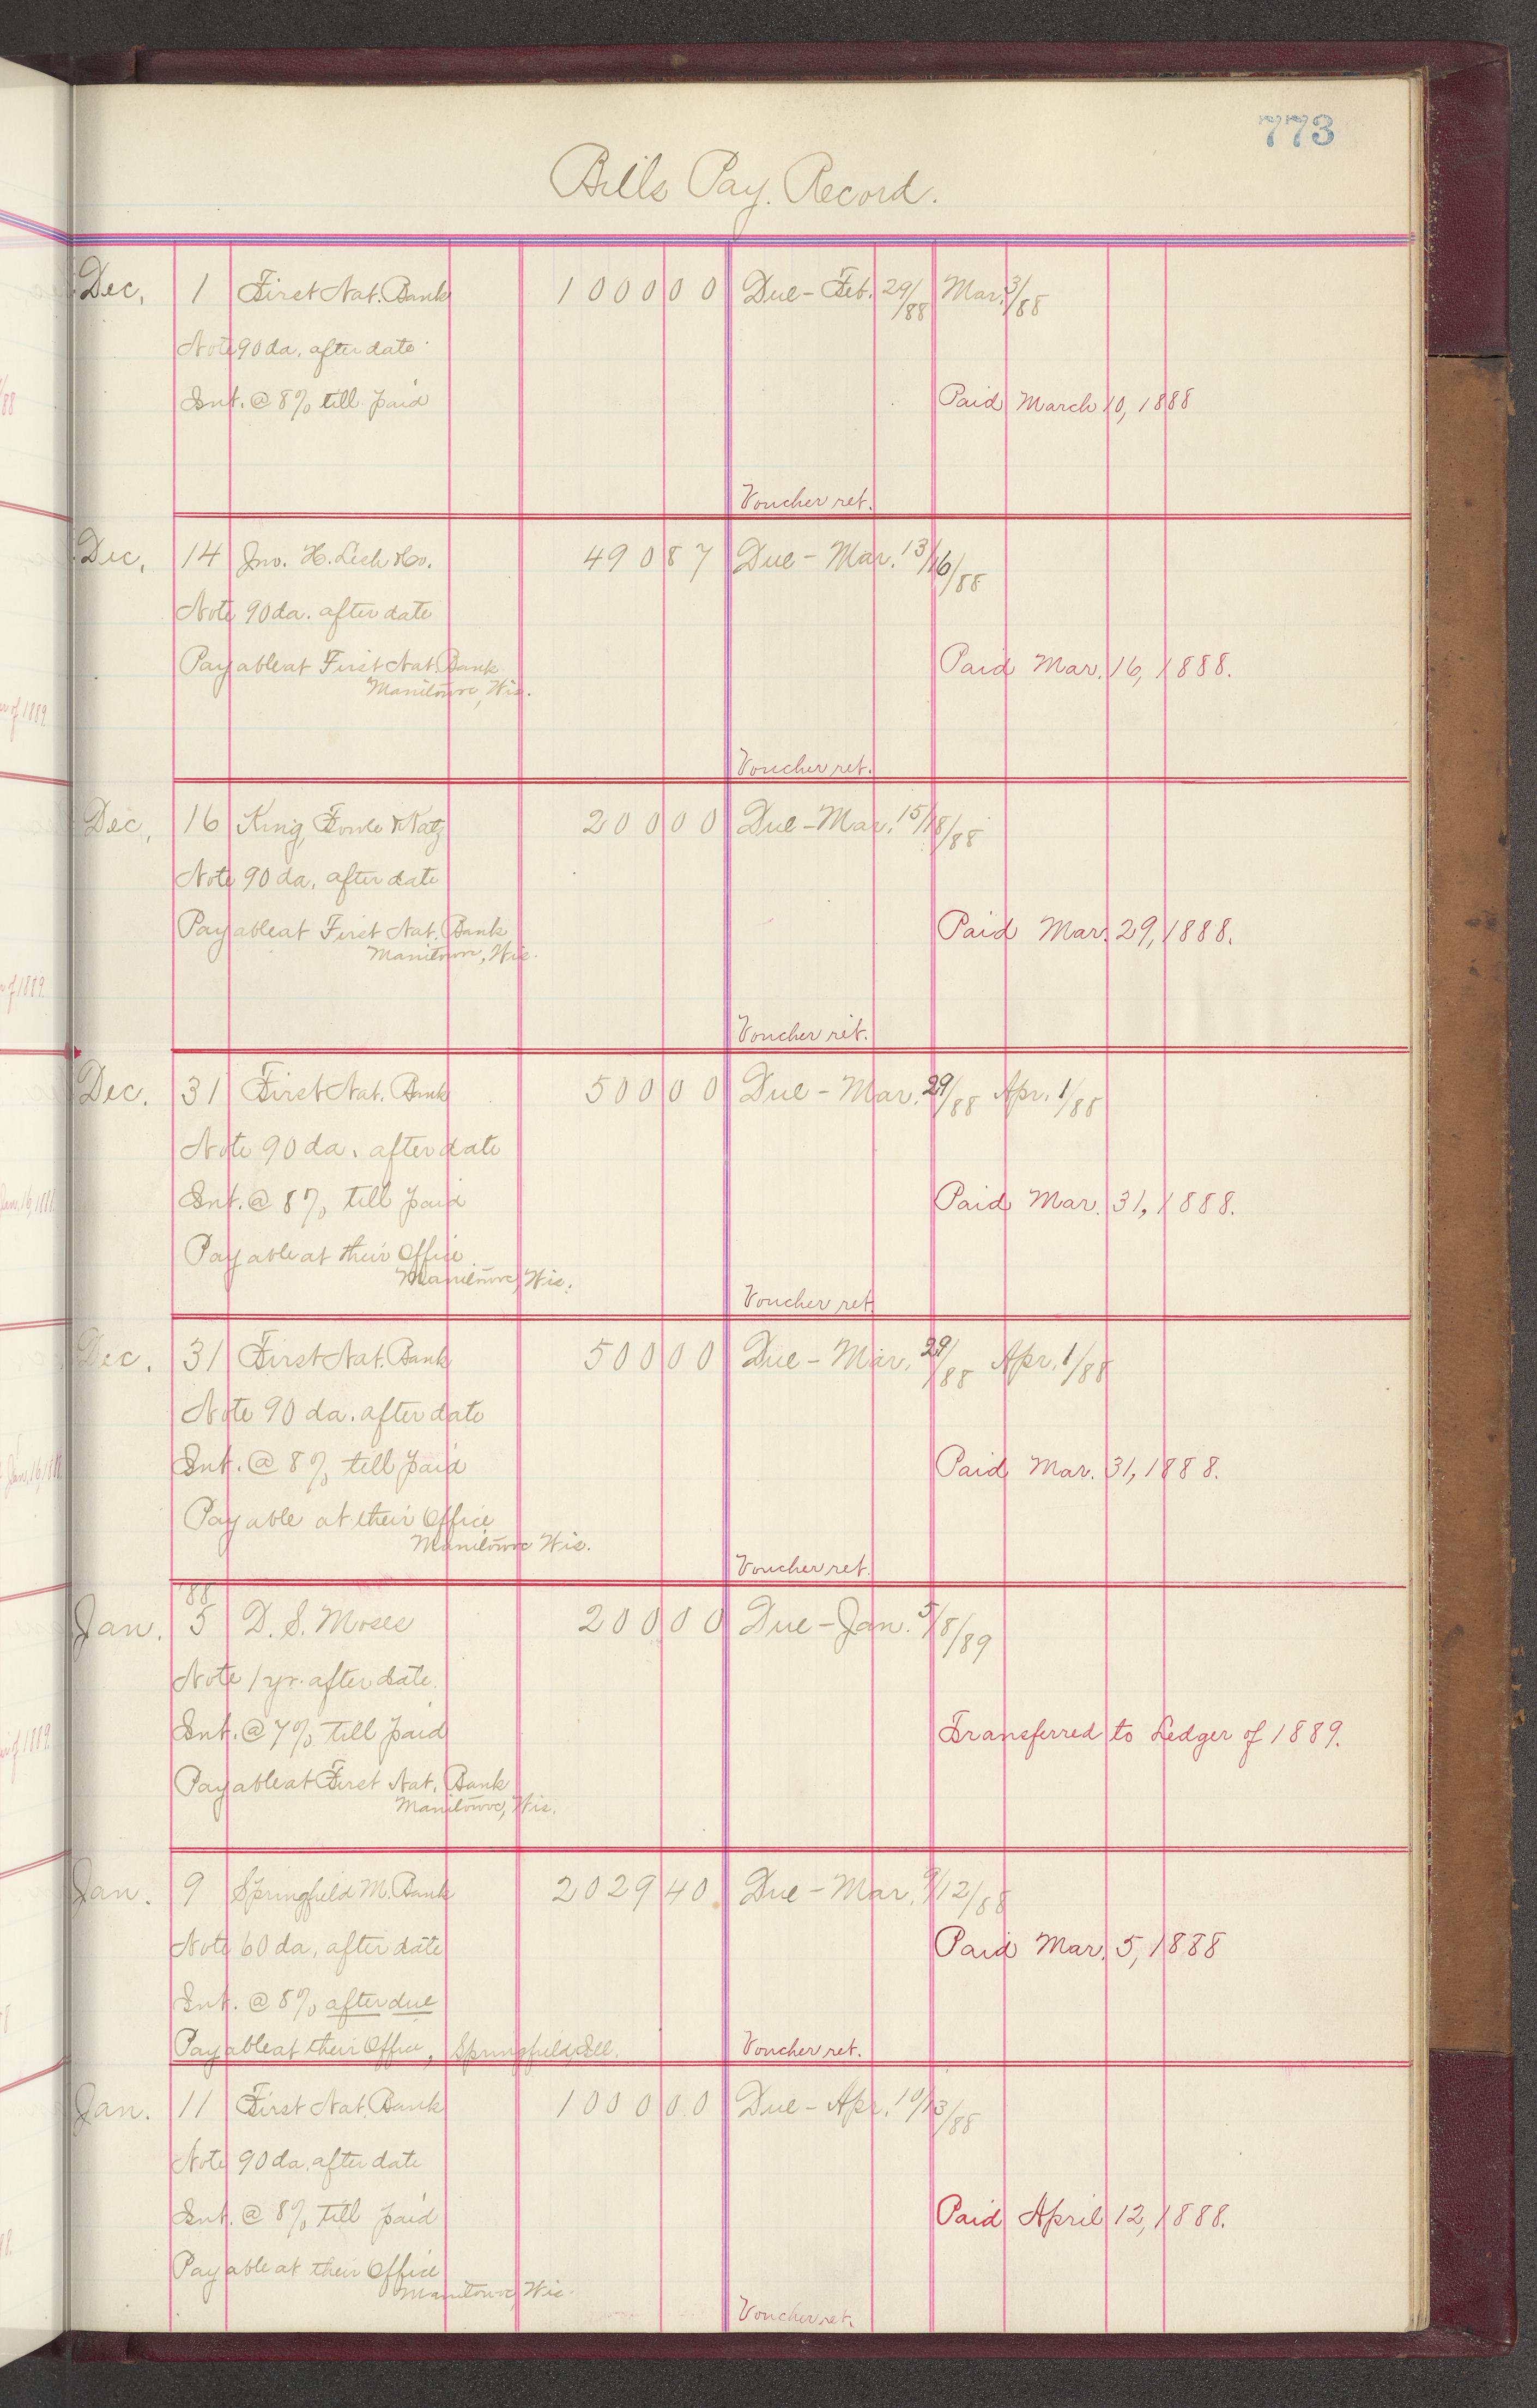 773
Bills Pay. Record.
Dec. 1 First Nat. Bank 1000 00 Due - Feb. 29/88 Mar. 3/88
Note 90 da. after date
Int. @ 8% till paid Paid March 10, 1888
Voucher ret.
Dec. 14 Jno. H. & Co. 490 87 Due - Mar. 13/16/88
Note 90 da. after date
Payable at First Nat. Bank Paid Mar. 16, 1888.
Manitowoc, Wis.
Voucher ret.
Dec. 16 King, Fowle & Katz 200 00 Due - Mar. 15/18/88
Note 90 da. after date
Payable at First Nat. Bank Paid Mar. 29, 1888.
Manitowoc, Wis.
Voucher ret.
Dec. 31 First Nat. Bank 500 00 Due - Mar. 29/88 Apr. 1/88
Note 90 da. after date
Int. @ 8% till paid Paid Mar. 31, 1888.
Payable at their Office
Manitowoc, Wis.
Voucher ret.
Dec. 31 First Nat. Bank 500 00 Due - Mar. 29/88 Apr. 1/88
Note 90 da. after date
Int. @ 8% till paid Paid Mar. 31, 1888.
Payable at their Office
Manitowoc Wis.
Voucher ret.
'88
Jan. 5 D. S. Moses 200 00 Due - Jan. 5/8/89
Note 1 yr. after date.
Int. @ 7% till paid Transferred to Ledger of 1889.
Payable at First Nat. Bank
Manitowoc, Wis.
Jan. 9 Springfield M. Bank 2029 40 Due - Mar. 9/12/88
Note 60 da. after date Paid Mar. 5, 1888
Int. @ 8% after due
Payable at their Office, Springfield, Ill. Voucher ret.
Jan. 11 First Nat. Bank 1000 00 Due - Apr. 10/13/88
Note 90 da. after date
Int. @ 8% till paid Paid April 12, 1888.
Payable at their Office
Manitowoc, Wis.
Voucher ret.